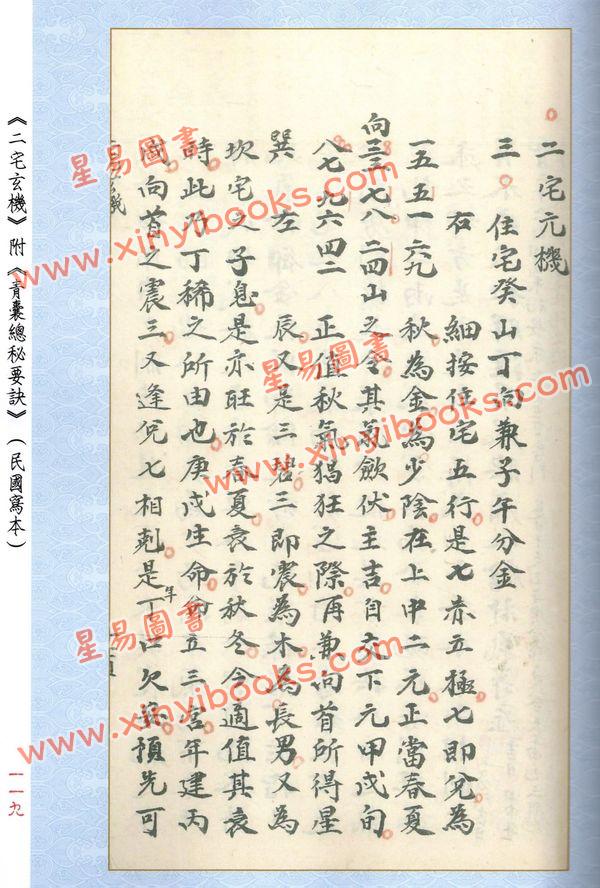 二宅元機
三 住宅癸山丁向兼子午分金
右 細按住宅五行是七赤立極七即兌為
一五五一六九 秋為金為少陰在上中二元正當春夏
向三三七八二四山 之令其氣斂伏主吉自交下元甲戌旬
八七九六四二 正值秋氣猖狂之際再兼向首所得星
巽 左 辰又是三碧三即震為木為長男又為
坎宅之子息是亦旺於春夏衰於秋冬今適值其衰
時此乃丁稀之所由也庚戌生命 立三宮年建丙
向首之震三又逢兌七相剋是年丁口欠 預先可
《二宅玄機》附《青囊總秘要訣》（民國寫本）
一一九
星易圖書
www.xinyibooks.com
星易圖書
www.xinyibooks.com
星易圖書
www.xinyibooks.com